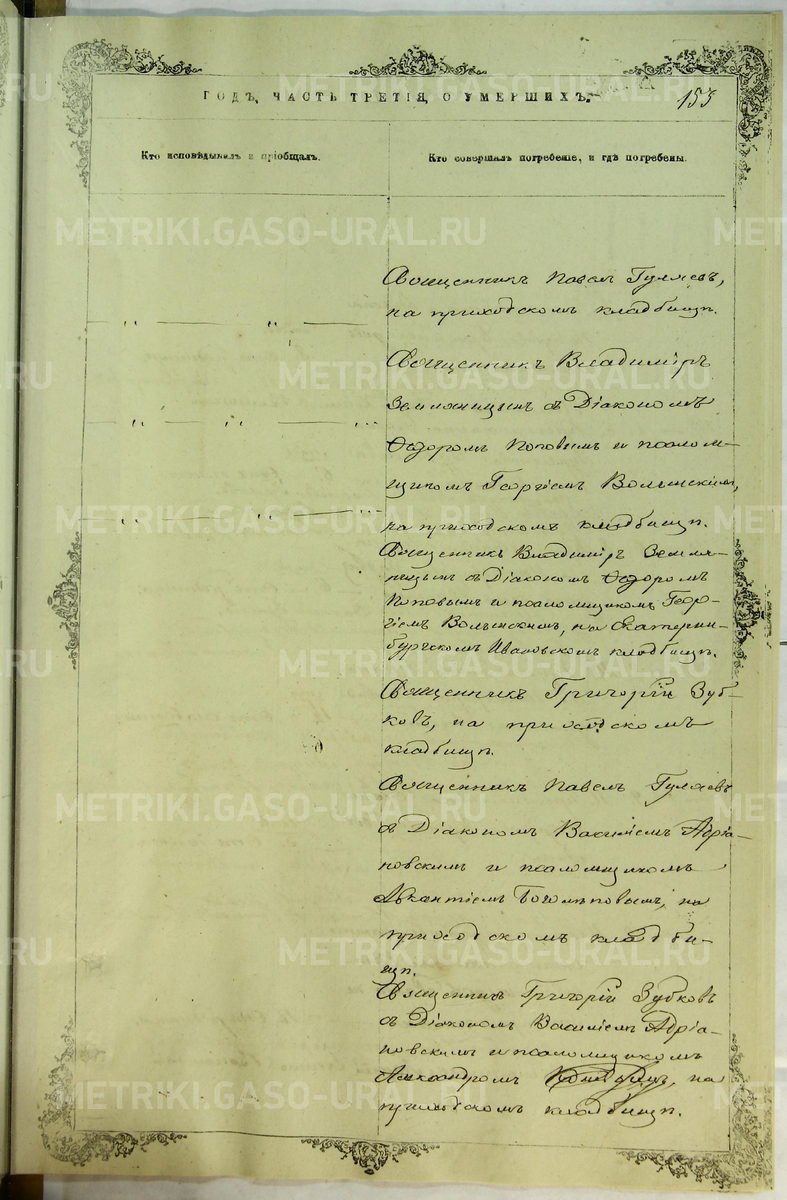 ГОДЪ, ЧАСТЬ ТРЕТІЯ, О УМЕРШИХЪ.
153
Кто исповѣдывалъ и пріобщалъ.
Кто совершалъ погребеніе, и гдѣ погребены.
Священникъ Павелъ Гуляевъ,
на приходскомъ кладбищѣ.
Священникъ Владиміръ
Земляницынъ съ Діакономъ
Ѳедоромъ Поповымъ и псалом-
щикомъ Георгіемъ Волынскимъ,
на приходскомъ кладбищѣ.
Священникъ Владиміръ Земля-
ницынъ съ Діакономъ Ѳедоромъ
Поповымъ и псаломщикомъ Геор-
гіемъ Волынскимъ, на Екатерин-
бургскомъ Ивановскомъ кладбищѣ.
Священникъ Григорій Зуб-
ковъ, на приходскомъ
кладбищѣ.
Священникъ Павелъ Гуляевъ
съ Діакономъ Василіемъ Адріа-
новскимъ и псаломщикомъ
на
приходскомъ кладби-
щѣ.
Священникъ Григорій Зубковъ
съ Діакономъ Василіемъ Адріа-
новскимъ и псаломщикомъ
Александромъ на
приходскомъ кладбищѣ.
METRIKI.GASO-URAL.RU